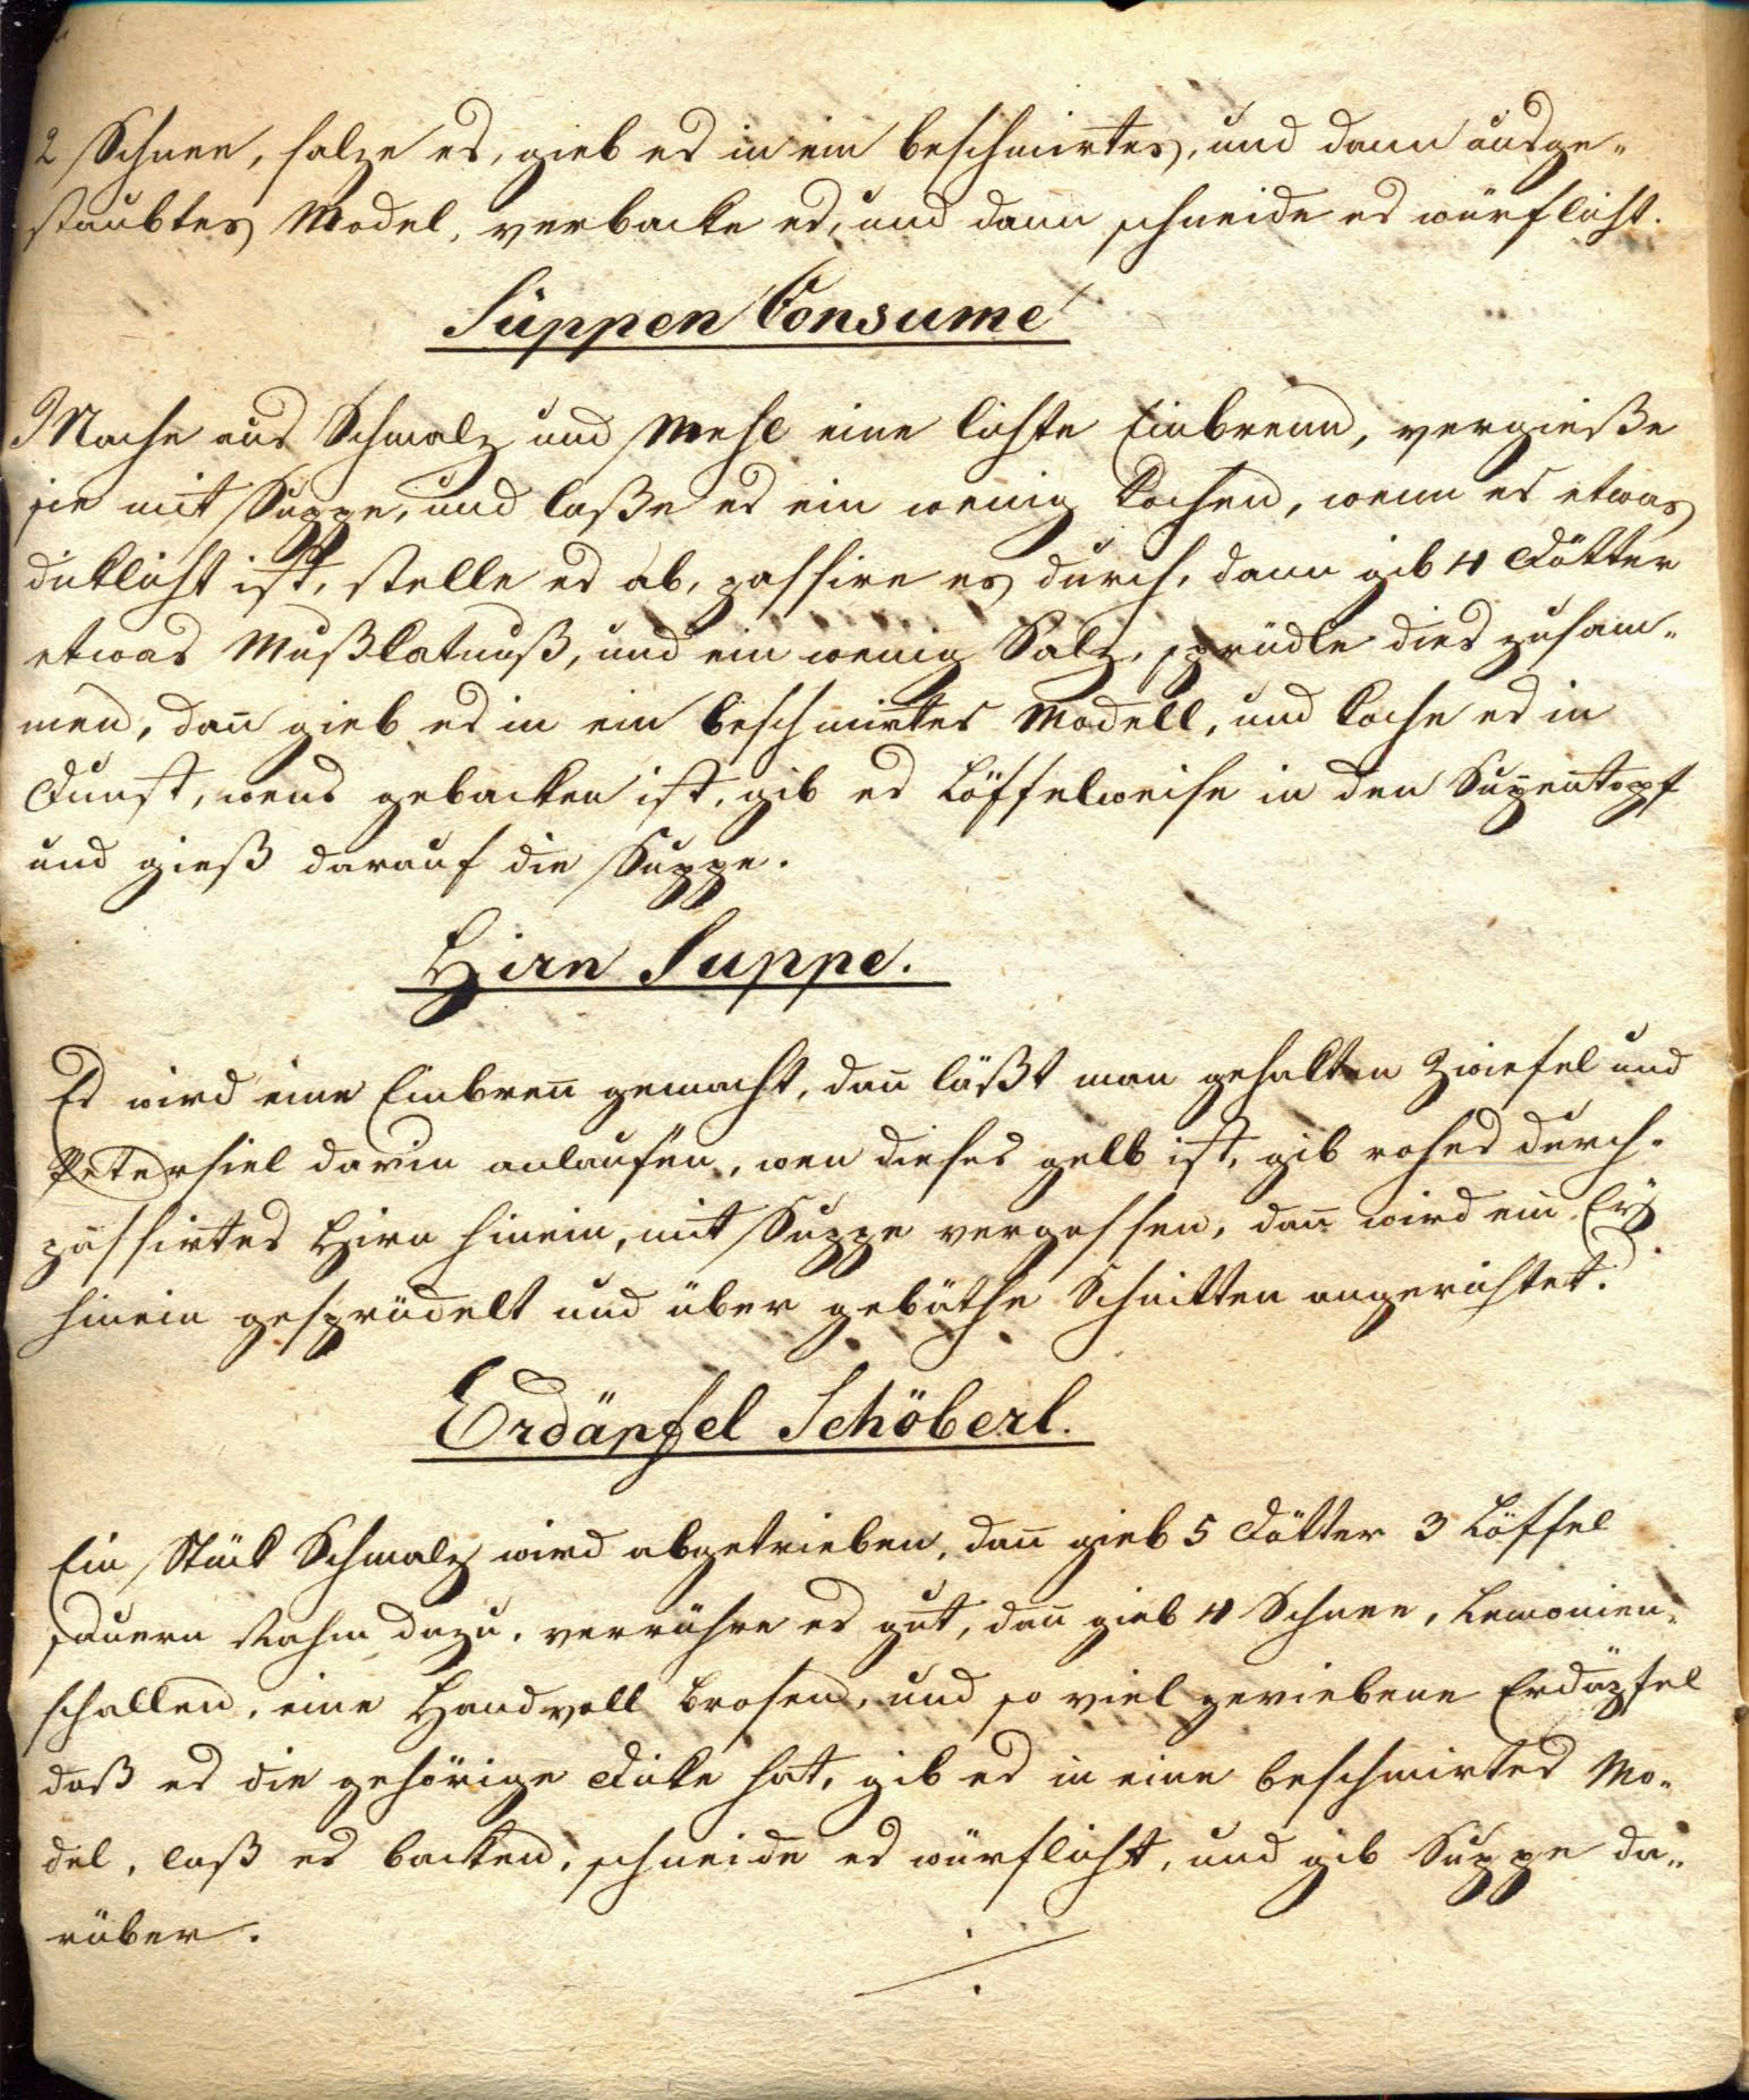 2 Schnee, salze es, gieb es in ein beschmirtes, und dann ausge-
staubtes Model, verbacke es, und dann schneide es würflicht.
Suppen Consumé
Mache aus Schmalz und Mehl eine lichte Einbrenn, vergieße
sie mit Suppe, und laße es ein wenig kochen, wenn es etwas
dicklicht ist, stelle es ab, passire es durch, dann gib 4 Dötter
etwas Mußkatnuß, und ein wenig Salz, sprüdle dies zusam-
men, dañ gieb es in ein beschmirtes Modell, und koche es in
Dunst, wens gebacken ist, gib es Löffelweise in den Supentopf
und gieß darauf die Suppe.
Hirn Suppe.
Es wird eine Einbreñ gemacht, dañ läßt man gehakten Zwiefel und
Petersiel darin anlaufen, wen dieses gelb ist, gib rohes durch-
passirtes Hirn hinein, mit Suppe vergossen, dañ wird ein Eÿ
hinein gesprüdelt und über gebäthe Schnitten angerichtet.
Erdäpfel Schöberl.
Ein Stück Schmalz wird abgetrieben, dañ gieb 5 Dötter 3 Löffel
sauern Rahm dazu, verrühre es gut, dañ gieb 4 Schnee, Lemonien-
schallen, eine Handvoll Brosen, und so viel geriebene Erdäpfel
daß es die gehörige Dicke hat, gib es in eine beschmirtes Mo-
del, laß es backen, schneide es würflicht, und gib Suppe da-
rüber.